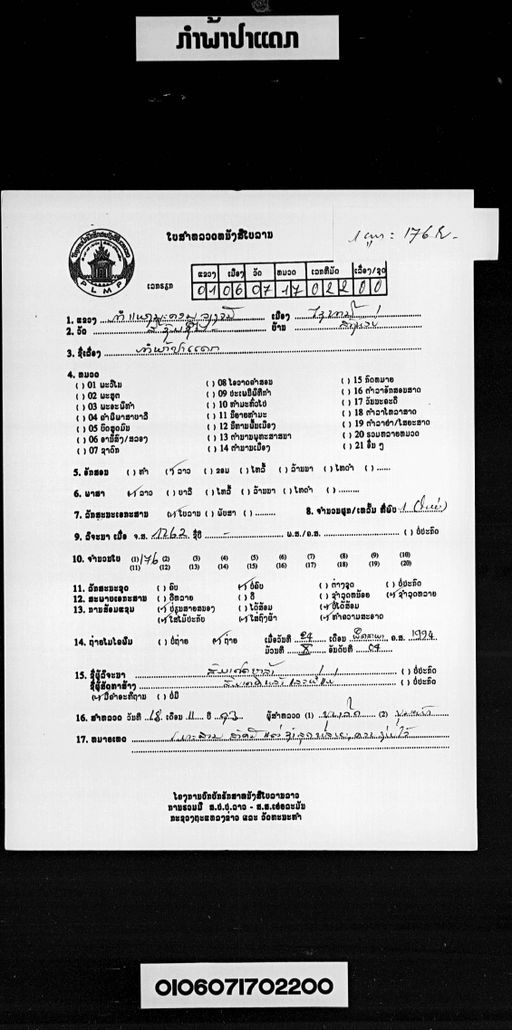 ກຳພ້າປາແດກ
ໃບສຳຫລວດໜັງສືໃບລານ
1 ຜູກ = 176 ໜ້າ
PLMP
ແຂວງ ເມືອງ ວັດ ໝວດ ເລກທີມັດ ເລື່ອງ/ຊຸດ
ເລກຮຽກ 01 06 07 17 022 00
1. ແຂວງ ເມືອງ
2. ວັດ ບ້ານ
3. ຊື່ເລື່ອງ ກຳພ້າປາແດກ
4. ໝວດ
( ) 01 ພະວິໄນ ( ) 08 ໂອວາດຄຳສອນ ( ) 15 ກົດໝາຍ
( ) 02 ພະສູດ ( ) 09 ປະເພນີພິທີກຳ ( ) 16 ຕຳລາອັກສອນສາດ
( ) 03 ພະອະພິທຳ ( ) 10 ທຳມະທົ່ວໄປ ( ) 17 ວັນນະຄະດີ
( ) 04 ຄຳພີພາສາບາລີ ( ) 11 ນິຍາຍທຳມະ ( ) 18 ຕຳລາໂຫລາສາດ
( ) 05 ບົດສູດມົນ ( ) 12 ນິທານພື້ນເມືອງ ( ) 19 ຕຳລາຢາ/ໄສຍະສາດ
( ) 06 ອານິສົງ/ສລອງ ( ) 13 ຕຳນານພຸທະສາສນາ ( ) 20 ຮວມຫລາຍໝວດ
( ) 07 ຊາດົກ ( ) 14 ຕຳນານເມືອງ ( ) 21 ອື່ນ ໆ
5. ອັກສອນ ( ) ທຳ (✓) ລາວ ( ) ຂອມ ( ) ໄທລື້ ( ) ລ້ານນາ ( ) ໄທດຳ ( )
6. ພາສາ (✓) ລາວ ( ) ບາລີ ( ) ໄທລື້ ( ) ລ້ານນາ ( ) ໄທດຳ ( )
7. ລັກສະນະເອກະສານ (✓) ໃບລານ ( ) ພັບສາ ( ) 8. ຈຳນວນຜູກ/ເຫລັ້ມ ທີ່ພົບ 1
9. ລິຈະນາ ເມື່ອ ຈ.ສ. 1262 ຊຶ່ງປີ - ພ.ສ./ຄ.ສ. ( ) ບໍ່ປະກົດ
10. ຈຳນວນໃບ (1) 176 (2) (3) (4) (5) (6) (7) (8) (9) (10)
(11) (12) (13) (14) (15) (16) (17) (18) (19) (20)
11. ລັກສະນະຊຸດ ( ) ຄົບ (✓) ບໍ່ຄົບ ( ) ຕ່າງຊຸດ ( ) ບໍ່ປະກົດ
12. ສະພາບເອກະສານ ( ) ດີຫລາຍ ( ) ດີ ( ) ຊຳລຸດໜ້ອຍ (✓) ຊຳລຸດຫລາຍ
13. ການສ້ອມແຊມ (✓) ປ່ຽນສາຍສນອງ ( ) ໄດ້ສ້ອມ (✓) ບໍ່ໄດ້ສ້ອມ
(✓) ໃສ່ໄມ້ປະກັບ (✓) ໃສ່ຖົງຜ້າ ( ) ທຳຄວາມສະອາດ
14. ຖ່າຍໄມໂຄຟິມ ( ) ບໍ່ຖ່າຍ (✓) ຖ່າຍ ເມື່ອວັນທີ 24 ເດືອນ ຄ.ສ. 1994
ມ້ວນທີ X ອັນດັບທີ 04
15. ຊື່ຜູ້ລິຈະນາ ( ) ບໍ່ປະກົດ
ຊື່ຜູ້ສັດທາສ້າງ ( ) ບໍ່ປະກົດ
(✓) ມີຄຳອະທິຖານ ( ) ບໍ່ມີ
16. ສຳຫລວດ ວັນທີ 18 ເດືອນ 11 ປີ 93 ຜູ້ສຳຫລວດ (1) (2)
17. ໝາຍເຫດ
ໂຄງການປົກປັກຮັກສາໜັງສືໃບລານລາວ
ການຮ່ວມມື ສ.ປ.ປ.ລາວ - ສ.ສ.ເຢຍລະມັນ
ກະຊວງຖະແຫລງຂ່າວ ແລະ ວັດທະນະທຳ
0106071702200